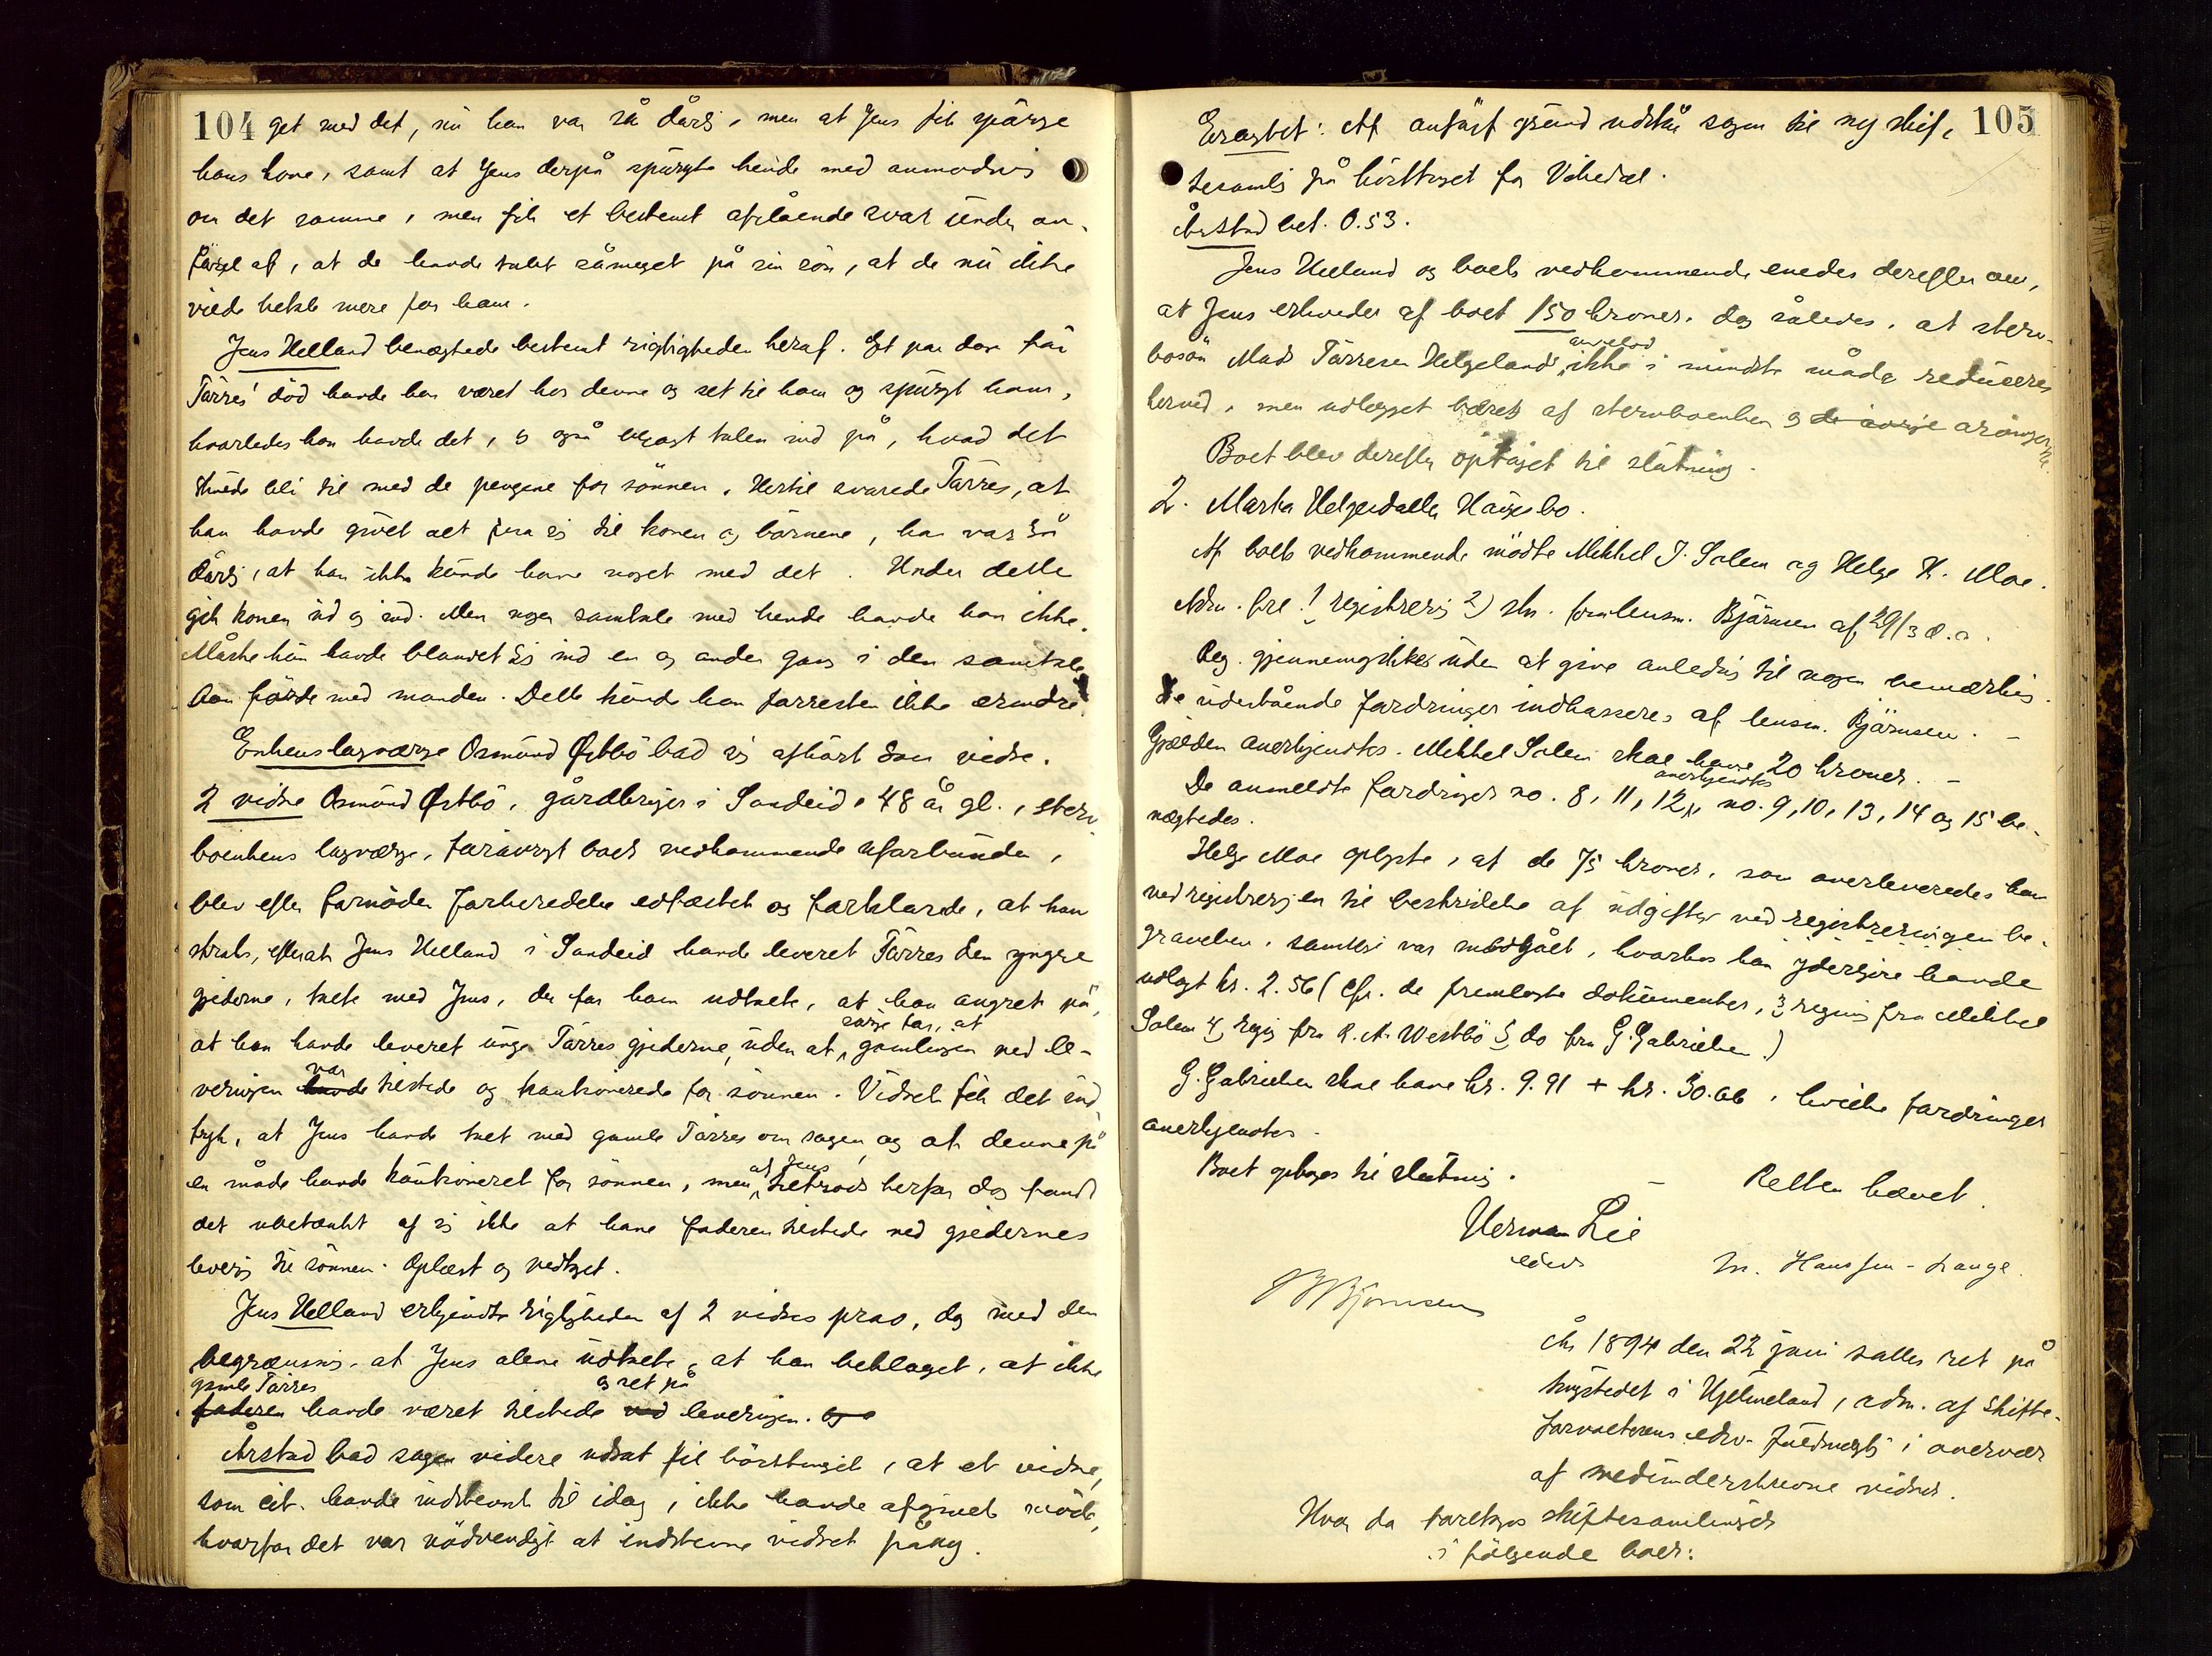 104 get med det, nu han var så dårlig, men at Jens fik spörge
hans kone, samt at Jens derpå spurgte hende med anmodning
om det samme, men fik et bestemt afslående svar under an-
försel af, at de havde tabt såmeget på sin sön, at de nu ikke
vilde betale mere for ham.
Jens Helland benægtede bestemt rigtigheden heraf. Et par dar för
Törres' död havde han været hos denne og set til ham og spurgt ham,
hvorledes han havde det, og også bragt talen ind på, hvad det
skulde bli til med de pengene for sönnen. Hertil svarede Törres, at
han havde givet alt fra sig til konen og börnene, han var så
dårlig, at han ikke kunde have noget med det. Under dette
gik konen ud og ind. Men nogen samtale med hende havde han ikke.
Måske hun havde blandet sig ind en og anden gang i den samtale
han förde med manden. Dette kunde han forresten ikke erindre.
Enkens lagværge Osmund Østbö bad sig afhört som vidne.
2 vidne Osmund Østbö, gårdbruger i Sandeid, 48 år gl., sterv-
boenkens lagværge, forövrigt boets vedkommende uforbunden,
blev efter fornöden forberedelse edfæstet og forklarde, at han
straks, efterat Jens Helland i Sandeid havde leveret Törres den yngre
gjederne, talte med Jens, der for ham udtalte, at han angret på,
at han havde leveret unge Törres gjederne, uden at sörge for, at gamlingen ved le-
veringen havde var tilstede og kautionerede for sönnen. Vidnet fik det ind-
tryk, at Jens havde talt med gamle Törres om sagen, og at denne på
en måde havde kautioneret for sönnen, men at Jens tiltrods herfor dog fandt
det ubetænkt af sig ikke at have faderen tilstede ved gjedernes
levering til sönnen. Oplæst og vedtaget.
Jens Helland erkjendte rigtigheden af 2 vidnes prov, dog med den
begrænsning, at Jens alene udtalte, at han beklaget, at ikke
gamle Törres faderen havde været tilstede ved og set på leveringen.
Årstad bad sagen videre udsat til hösttinget, at et vidne,
som cit. havde indstevnt til idag, ikke havde afgivet möde,
hvorfor det var nödvendigt at indstevne vidnet påny.
105
Eragtet: Af anfört grund udstår sagen til ny skif-
tesamling på hösttinget for Vikedal.
Årstad bet. 0.53.
Jens Helland og boets vedkommende enedes derefter om,
at Jens erholder af boet 150 kroner, dog således, at sterv-
bosön Mads Törresen Helgelands arvelod ikke i mindste måde reduceres
herved, men udlægget bæres af stervboenken og de övrige arvinger.
Boet blev derefter optaget til slutning.
2. Marta Helgesdatter Haugsbo.
Af boets vedkommende mödte Mikkel J. Solem og Helge H. Moe.
Adm. frel. 1 registrering 2) skr. fra lensm. Björnsen af 29/3 d. a.
Reg. gjennemgikkes uden at give anledning til nogen bemærkning.
De udestående fordringer indkasseres af lensm. Björnsen. –
Gjælden anerkjendtes. Mikkel Solem skal have 20 kroner. –
De anmeldte fordringer no. 8, 11, 12 anerkjendtes, no. 9, 10, 13, 14 og 15 be-
nægtedes.
Helge Moe oplyste, at de 75 kroner, som overleveredes ham
ved registreringen til bestridelse af udgifter ved registreringen be-
gravelsen, samtlige var medgået, hvorhos han yderligere havde
udlagt kr. 2.56 (cfr. de fremlagte dokumenter, 3 regning fra Mikkel
Solem 4 regng fra R. A. Westbö 5 do fra G. Gabrielsen.)
G. Gabrielsen skal have kr. 9.91 + kr. 30.66, hvilke fordringer
anerkjendtes.
Boet optoges til slutning. – Retten hævet.
Herman Lie
edsv.
M. Hanssen-Lange.
B Björnsen
År 1894 den 22 juni sattes ret på
tingstedet i Hjelmeland, adm. af skifte-
forvalterens edsv. fuldmægtig i overvær
af medunderskrevne vidner.
Hvor da foretoges skiftesamlinger
i fölgende boer: